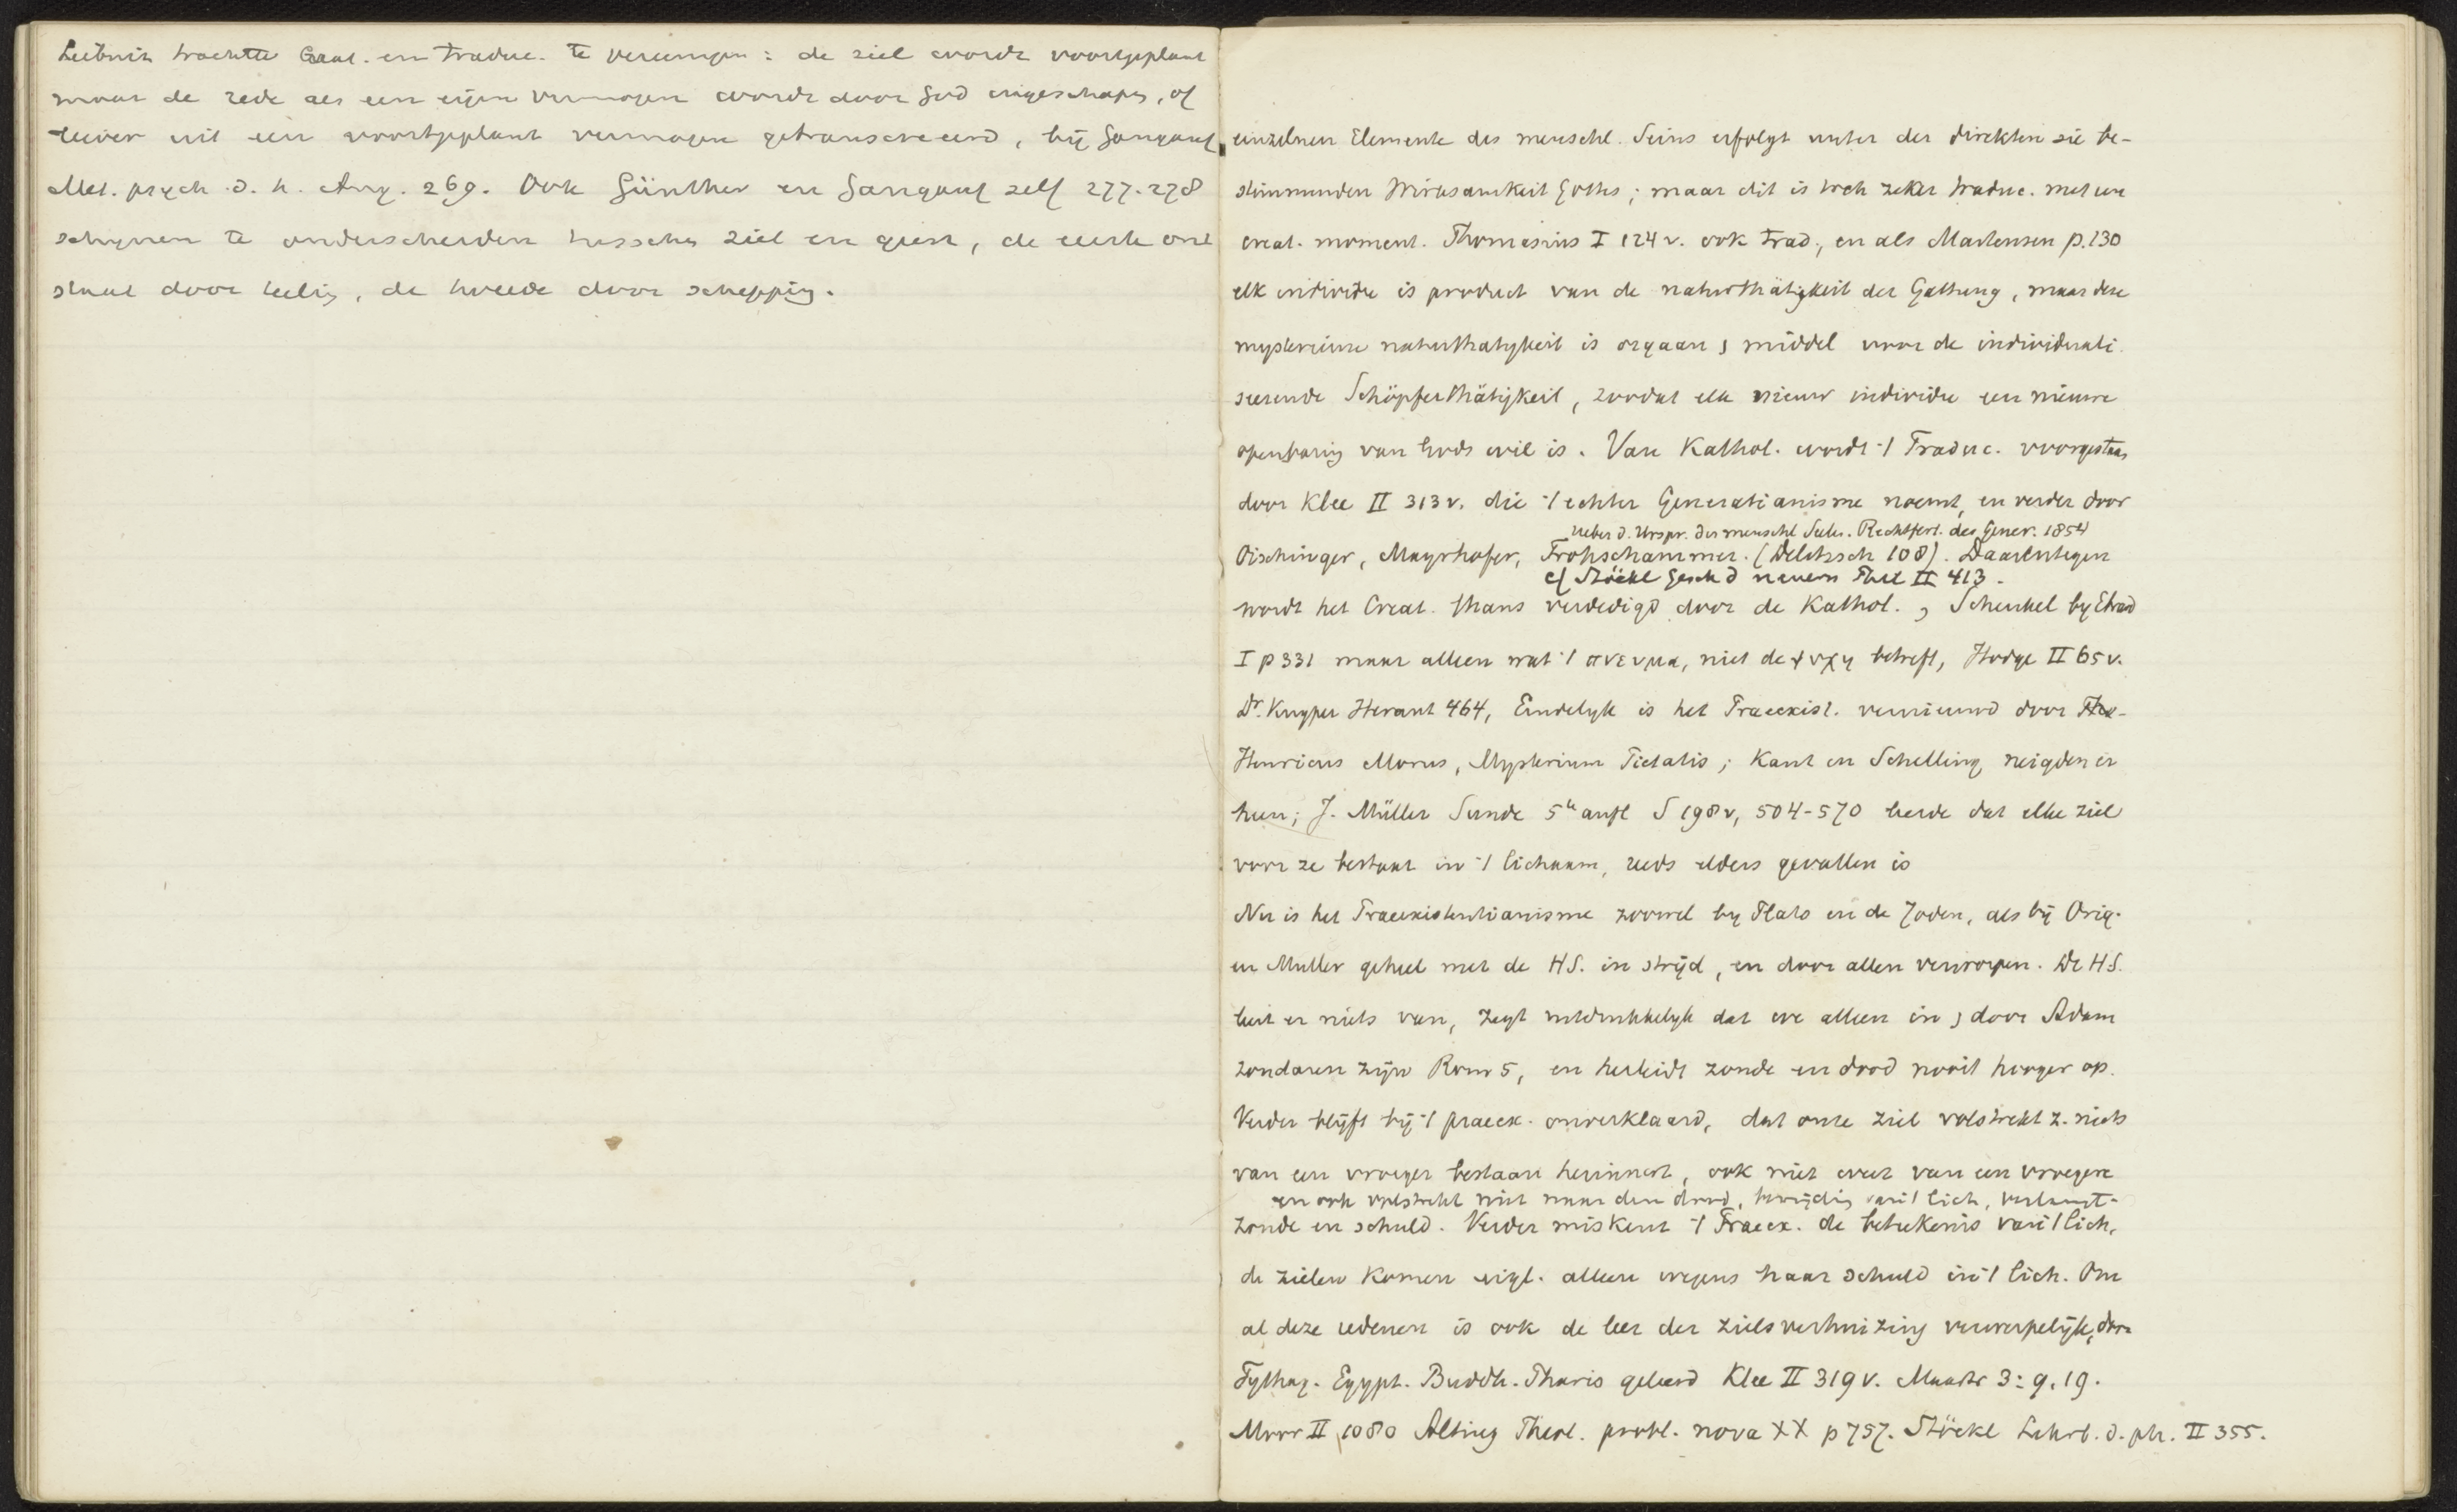 Leibniz trachtte Creat. en Traduc. te vereenigen: de ziel wordt voortgeplant
maar de rede als een eigen vermogen wordt door God ingeschapen, of
liever uit een voortgeplant vermogen getranscreeerd, bij Gangauf
Met. psych. d. h. Aug. 269. Ook Günther en Gangauf zelf 277-278
schijnen te onderscheiden tusschen ziel en geest, de eerste ont
staat door teling, de tweede door schepping.
einzelnen Elemente des menschl. Seins erfolgt unter der direkten sie be-
stimmenden Wirksamkeit Gottes; maar dit is toch zeker traduc. met een
creat. moment. Thomasius I 124 v. ook trad., en als Martensen p. 130
elk individu is product van de naturthätigkeit der Gattung, maar deze
mysterieuse naturthatigkeit is orgaan, middel voor de individuali
seerende Schöpferthätigkeit, zoodat elk nieuw individu een nieuwe
openbaring van Gods wil is. Van Kathol. wordt 't Traduc. voorgestaan
door Klee II 313 v. die 't echter Generatianisme noemt, en verder door
Ueber d. Urspr. der menschl. Seelen. Rechtfert. des Gener. 1854
Oischinger, Mayrhofer, Frohschammer. (Delitzsch 108). Daarentegen
cf Stöckl Gesch d neuern Phil II 413.
wordt het Creat. thans verdedigd door de Kathol., Schenkel by Ebrard
I p 331 maar alleen wat 't πνευμα, niet de ψυχη betreft, Hodge II 65 v.
Dr. Kuyper Heraut 464, Eindelyk is het Praeexist. vernieuwd door
Henricus Morus, Mysterium Pietatis; Kant en Schelling neigden er
heen; J. Müller Sunde 5e aufl S 198 v, 504-570 leerde dat elke ziel
voor ze bestaat in 't lichaam, reeds elders gevallen is
Nu is het Praeexistentianisme zoowel by Plato en de Joden, als bij Orig.
en Muller geheel met de H S. in strijd, en door allen verworpen. De H S.
leert er niets van, zegt uitdrukkelyk dat we alleen in, door Adam
zondaren zijn Rom 5, en herleidt zonde en dood nooit hooger op.
Verder blijft bij 't praeex. onverklaard, dat onze ziel volstrekt z. niets
van een vroeger bestaan herinnert, ook niet weet van een vroegere
en ook volstrekt niet naar den dood, bevrijding van 't lich, verlangt.
zonde en schuld. Verder miskent 't Praeex. de beteekenis van 't lich,
de zielen komen eigl. alleen wegens haar schuld in 't lich. Om
al deze redenen is ook de leer der zielsverhuizing verwerpelijk, door
Pythag. Egypt. Buddh. geleerd Klee II 319 v. 3: 9, 19.
Moor II 1080 Alting Theol. probl. nova XX p 757. Stöckl Lehrb. d. ph. II 355.